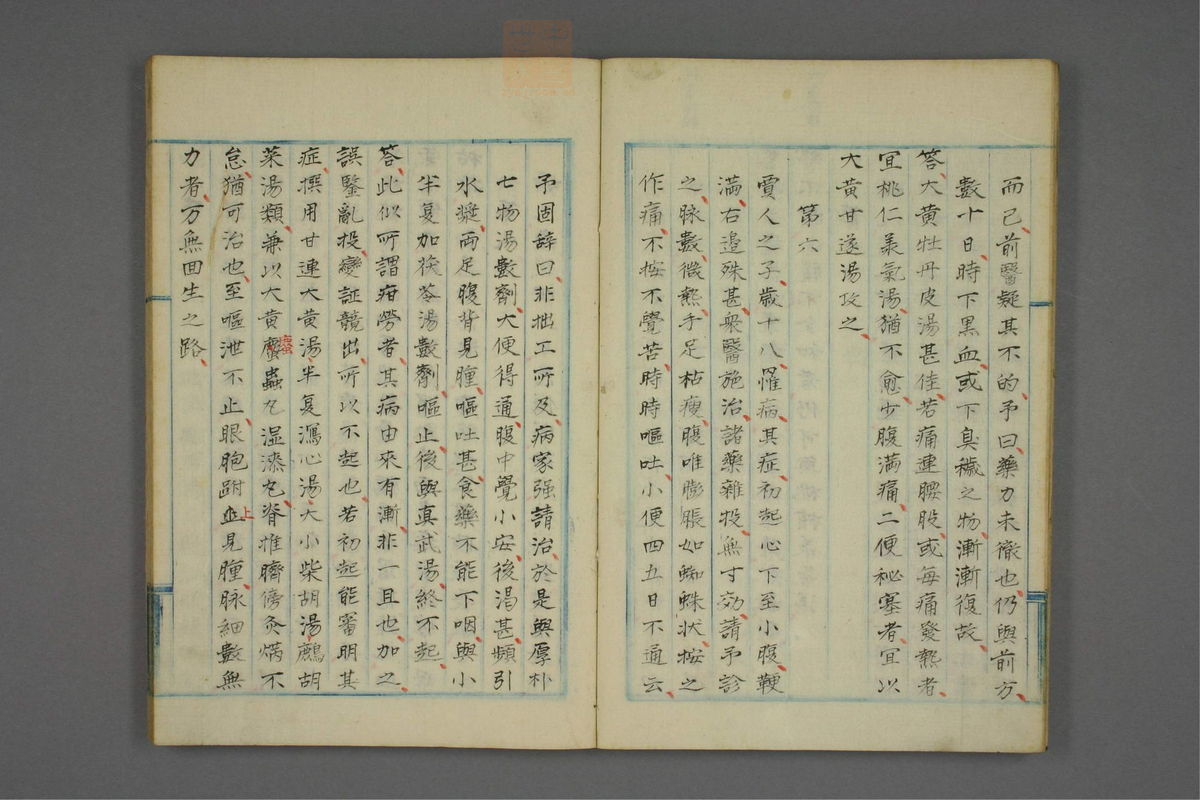 而已、前醫疑其不的、予曰、藥力未徹也、仍與前方、
數十日、時下黑血、或下臭穢之物、漸漸復故、
答、大黃牡丹皮湯甚佳、若痛連腰股、或每痛發熱者、
宜桃仁羕氣湯、猶不愈、少腹滿痛、二便祕塞者、宜以
大黃甘遂湯攻之、
第六
賈人之子、歲十八、罹病、其症、初起心下至小腹、鞕
滿、右邊殊甚、衆醫施治、諸藥雜投、無寸効、請予診
之、脉數、微熱、手足枯瘦、腹唯膨脹如蜘蛛狀、按之
作痛、不按不覺苦、時時嘔吐、小便四五日不通云、
予固辞曰、非拙工所及、病家强請治、於是與厚朴
七物湯數劑、大便得通、腹中覺小安、後渴甚、頻引
水漿、兩足腹背見腫、嘔吐甚、食藥不能下咽、與小
半夏加茯苓湯數劑、嘔止、後與真武湯、終不起、
答、此似所謂疳勞者、其病由來有漸、非一旦也、加之
誤醫亂投、變証競出、所以不起也、若初起能審明其
症、撰用甘連大黃湯、半夏瀉心湯、大小柴胡湯、鷓胡
菜湯類、兼以大黃䗪蟲丸、濕漆丸、脊推臍傍灸焫不
怠、猶可治也、至嘔泄不止、眼胞跗上並見腫、脉細數無
力者、万無回生之路、